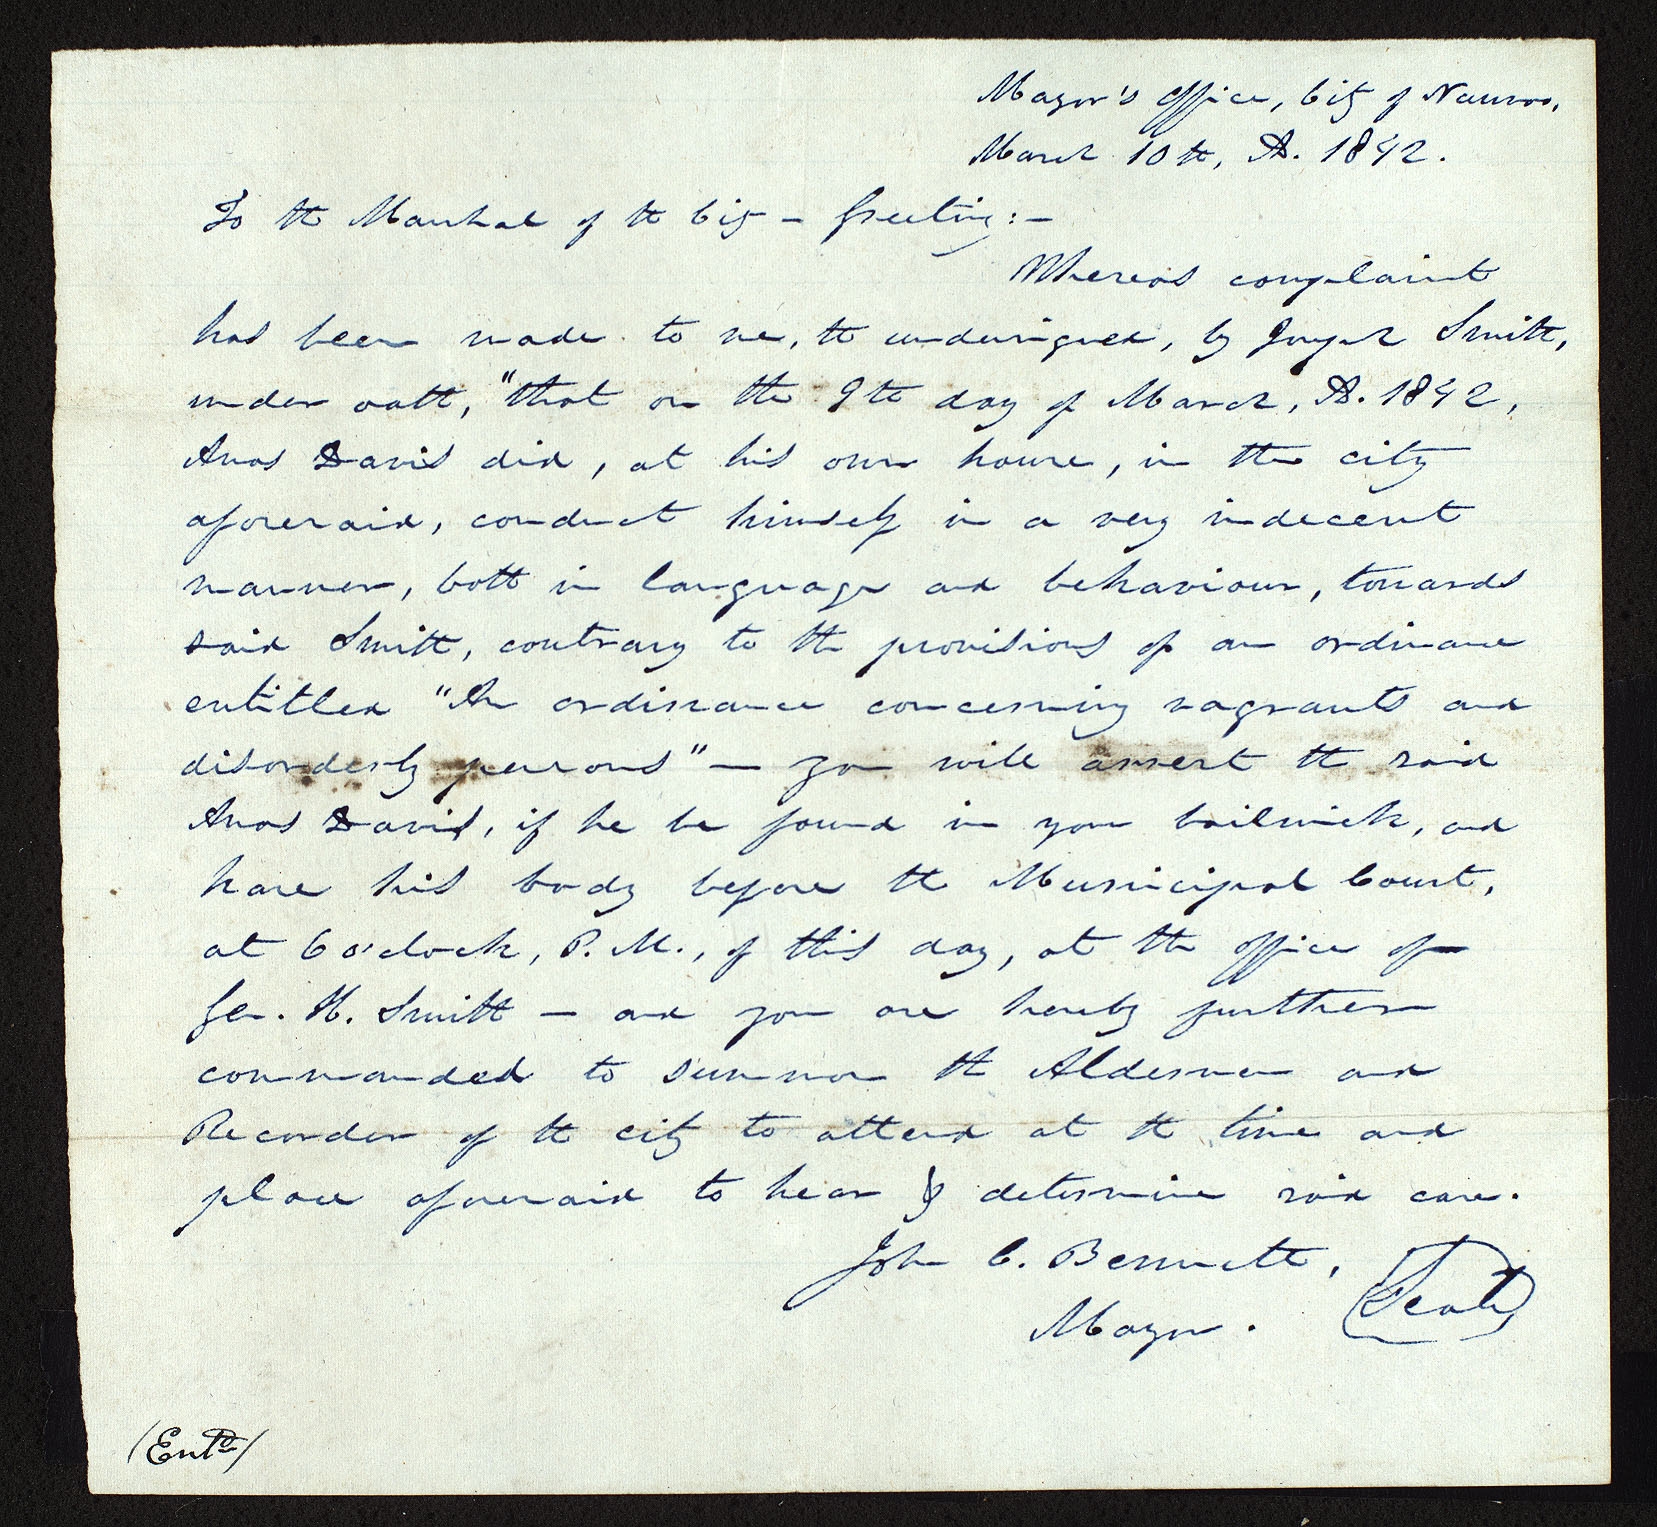 Mayor's Office, City of Nauvoo,
March 10th, AD. 1842.
To the Marshal of the City – Greeting:–
Whereas complaint
has been made to me, the undersigned, by Joseph Smith,
under oath, "that on the 9th day of March, AD. 1842,
Amos Davis did, at his own house, in the city
aforesaid, conduct himself in a very indecent
manner, both in language and behaviour, towards
said Smith, contrary to the provisions of an ordinance
entitled "An ordinance concerning vagrants and
disorderly persons" — you will arrest the said
Amos Davis, if he be found in your bailiwick, and
have his body before the Municipal Court,
at 6 o'clock, P. M., of this day, at the office of
Gen. H. Smith — and you are hereby further
commanded to summon the Aldermen and
Recorder of the city to attend at the time and
place aforesaid to hear & determine said case.
John C. Bennett,
Mayor. Seal
(Entd)